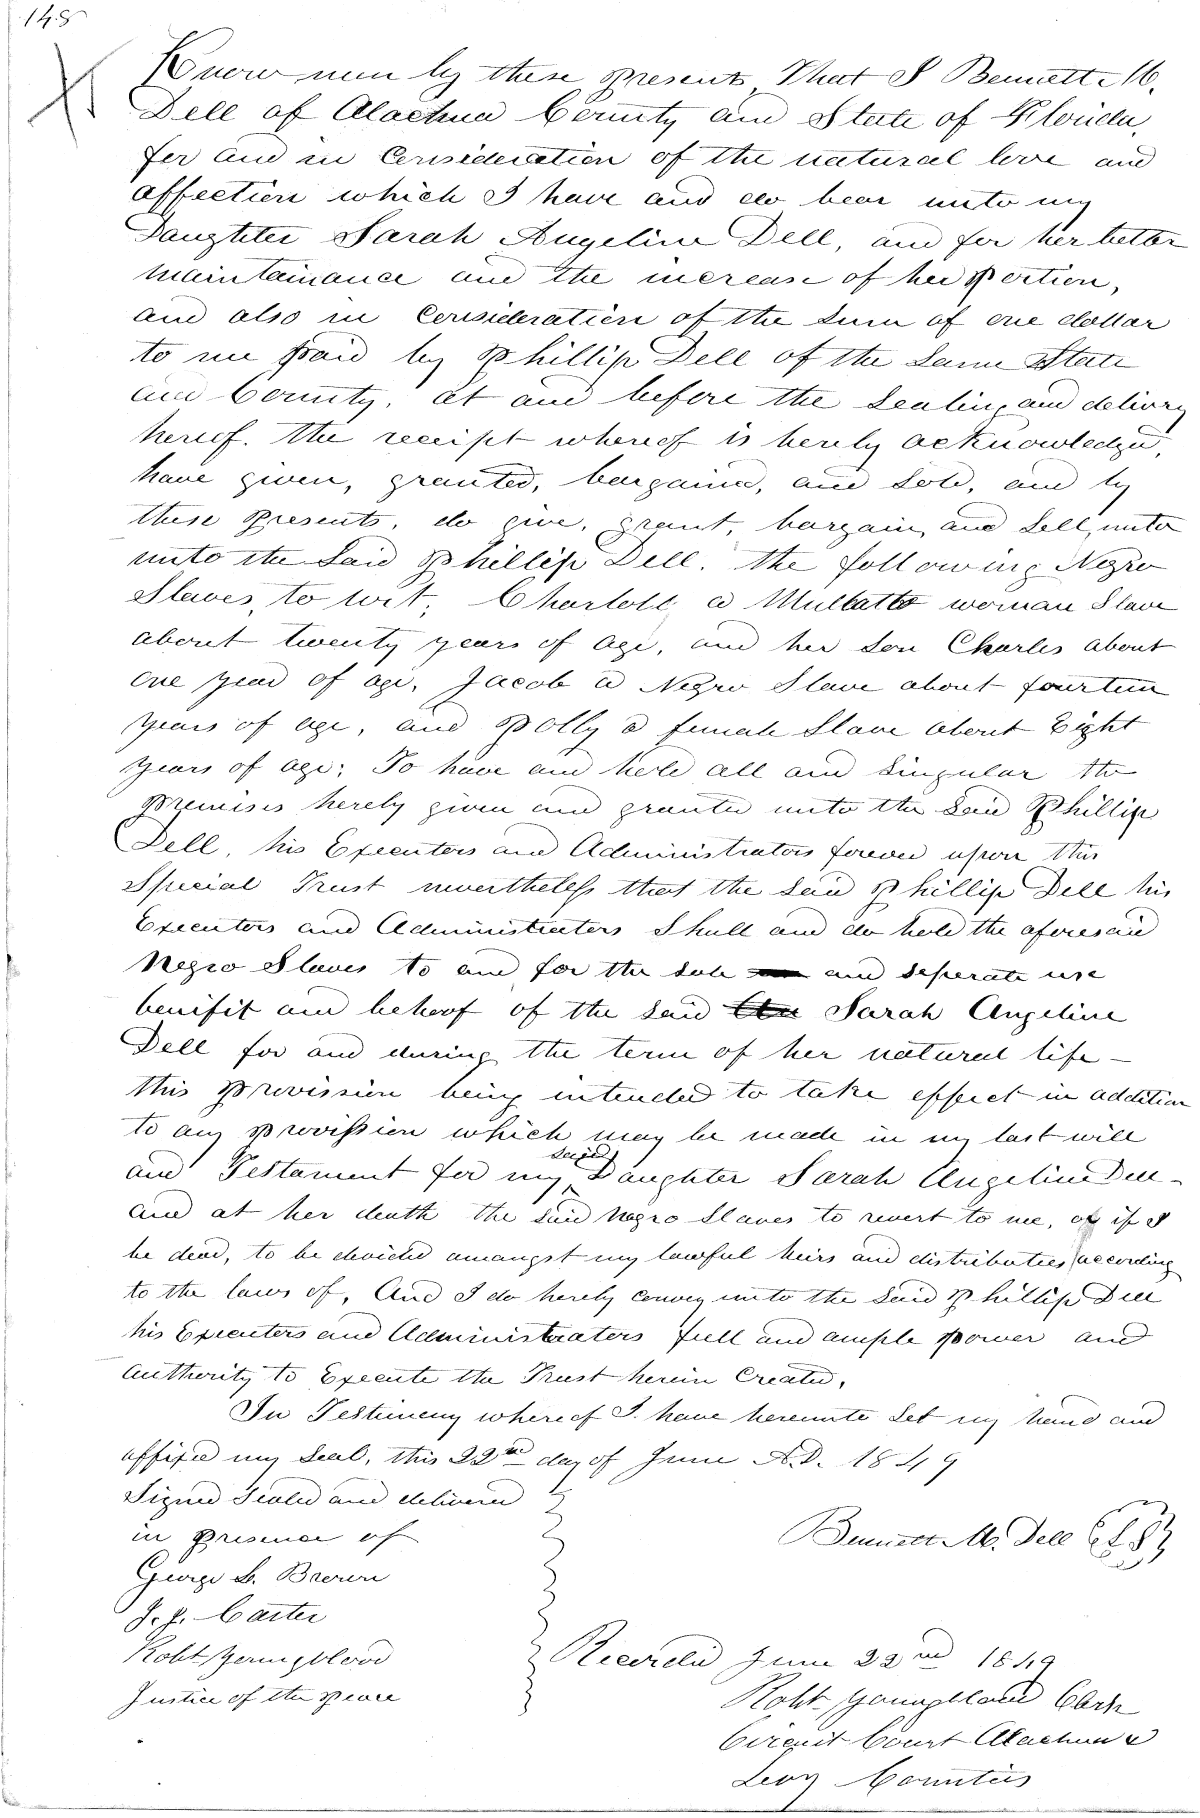 148
Know men by these presents, That I Bennett M.
Dell of Alachua County and State of Florida,
for and in Consideration of the natural love and
affection which I have and do bear unto my
Daughter Sarah Angeline Dell, and for her better
maintainance and the increase of her portion,
and also in Consideration of the sum of one dollar
to me paid by Phillip Dell of the same State
and County, at and before the sealing and delivry
hereof. the receipt whereof is hereby acknowledged,
have given, granted, bargained, and sold, and by
these presents, do give, grant, bargain, and sell, unto
unto the said Phillip Dell. the following Negro
Slaves, to wit, Charlott, a Mullatto woman Slave
about twenty years of age, and her son Charles about
one year of age, Jacob a Negro Slave about fourteen
years of age, and Polly a female Slave about Eight
years of age; To have and hold all and singular the
premises hereby given and granted unto the said Phillip
Dell, his Executors and Administrators forever upon this
Special Trust nevertheless that the said Phillip Dell his
Executors and Administrators shall and do hold the aforesaid
Negro Slaves to and for the sole and seperate use
benifit and behoof of the said Sarah Angeline
Dell for and during the term of her natural life –
this provission being intended to take effect in addition
to any provission which may be made in my last will
and Testament for my said Daughter Sarah Angeline Dell –
and at her death the said Negro Slaves to revert to me, or if I
be dead, to be divided amongst my lawful heirs and distributees according
to the laws of, And I do hereby convey unto the said Phillip Dell
his Executors and Administrators full and ample power and
authority to Execute the Trust herein Created.
In Testimony whereof I have hereunto set my hand and
affixed my seal, this 22nd day of June A.D. 1849
Signed Sealed and delivered
in presence of
Bennett M. Dell L.S.
George L. Brown
J. J. Carter
Robt Youngblood
Justice of the peace
Recorded June 22nd 1849
Robt. Youngblood Clerk
Circuit Court Alachua &
Levy Counties